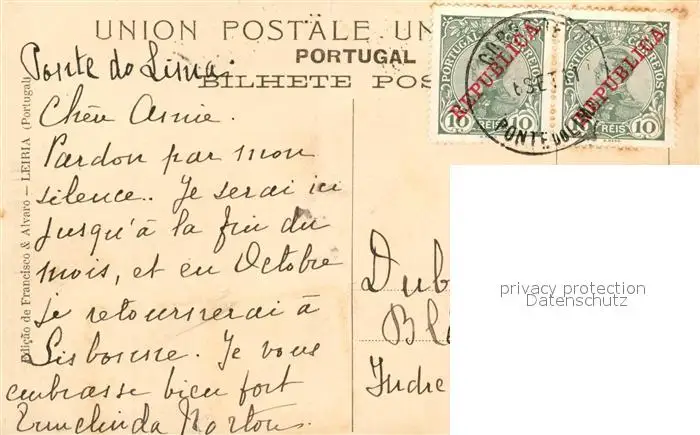 UNION POSTALE UN
PORTUGAL
BILHETE POS
Ponte do Lima.
Chère Amie.
Pardon par mon
silence.. Je serai ici
jusqu'à la fin du
mois, et en Octobre
je retournerai à
Lisbonne. Je vous
embrasse bien fort
Ermelinda
Edição de Francisco & Alvaro — LEIRIA (Portugal)
PORTUGAL CORREIOS
REPUBLICA
10 REIS 10
PORTUGAL CORREIOS
REPUBLICA
REIS 10
CORREIO
6 SET
PONTE DO LIMA
Dub
Bl
Indre
privacy protection
Datenschutz